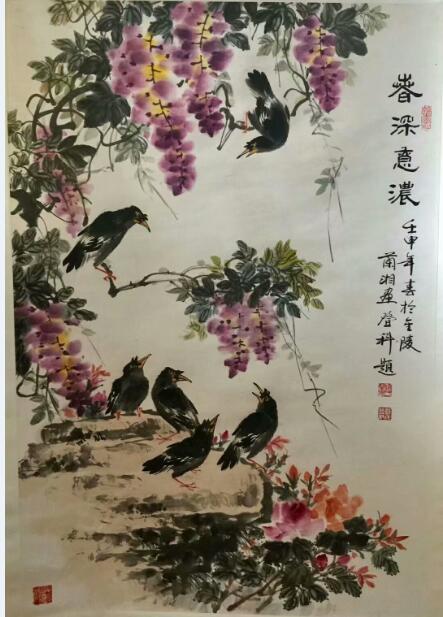 春深意濃
壬申年書於金陵
蘭湘画登科題